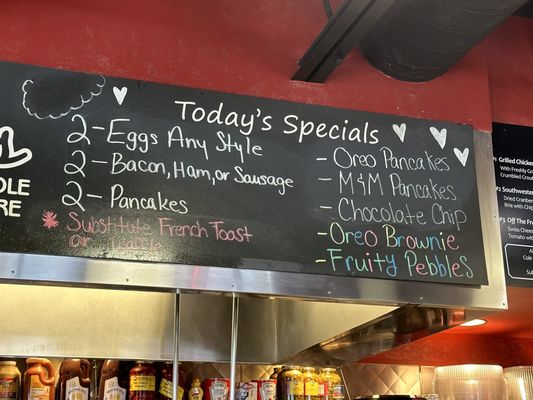 Today's Specials
2-Eggs Any Style
2-Bacon, Ham, or Sausage
2-Pancakes
Substitute French Toast
or
- Oreo Pancakes
- M&M Pancakes
- Chocolate Chip
- Oreo Brownie
- Fruity Pebbles
Grilled Chicken
With Freshly
Crumbled
Southwestern
Dried Cranber
Brie with Chip
Off The
Swiss Cheese
Tomato with